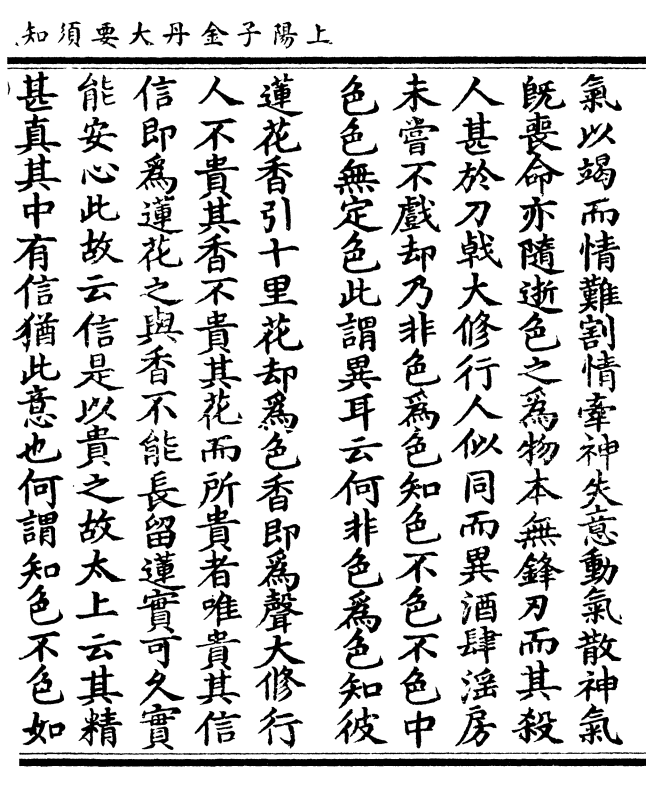 上陽子金丹大要須知
氣以竭而情難割情牽神失意動氣散神氣
既喪命亦隨逝色之爲物本無鋒刃而其殺
人甚於刀戟大修行人似同而異酒肆滛房
未嘗不戲却乃非色爲色知色不色不色中
色色無定色此謂異耳云何非色爲色知彼
蓮花香引十里花却爲色香即爲聲大修行
人不貴其香不貴其花而所貴者唯貴其信
信即爲蓮花之與香不能長留蓮實可久實
能安心此故云信是以貴之故太上云其精
甚真其中有信猶此意也何謂知色不色如